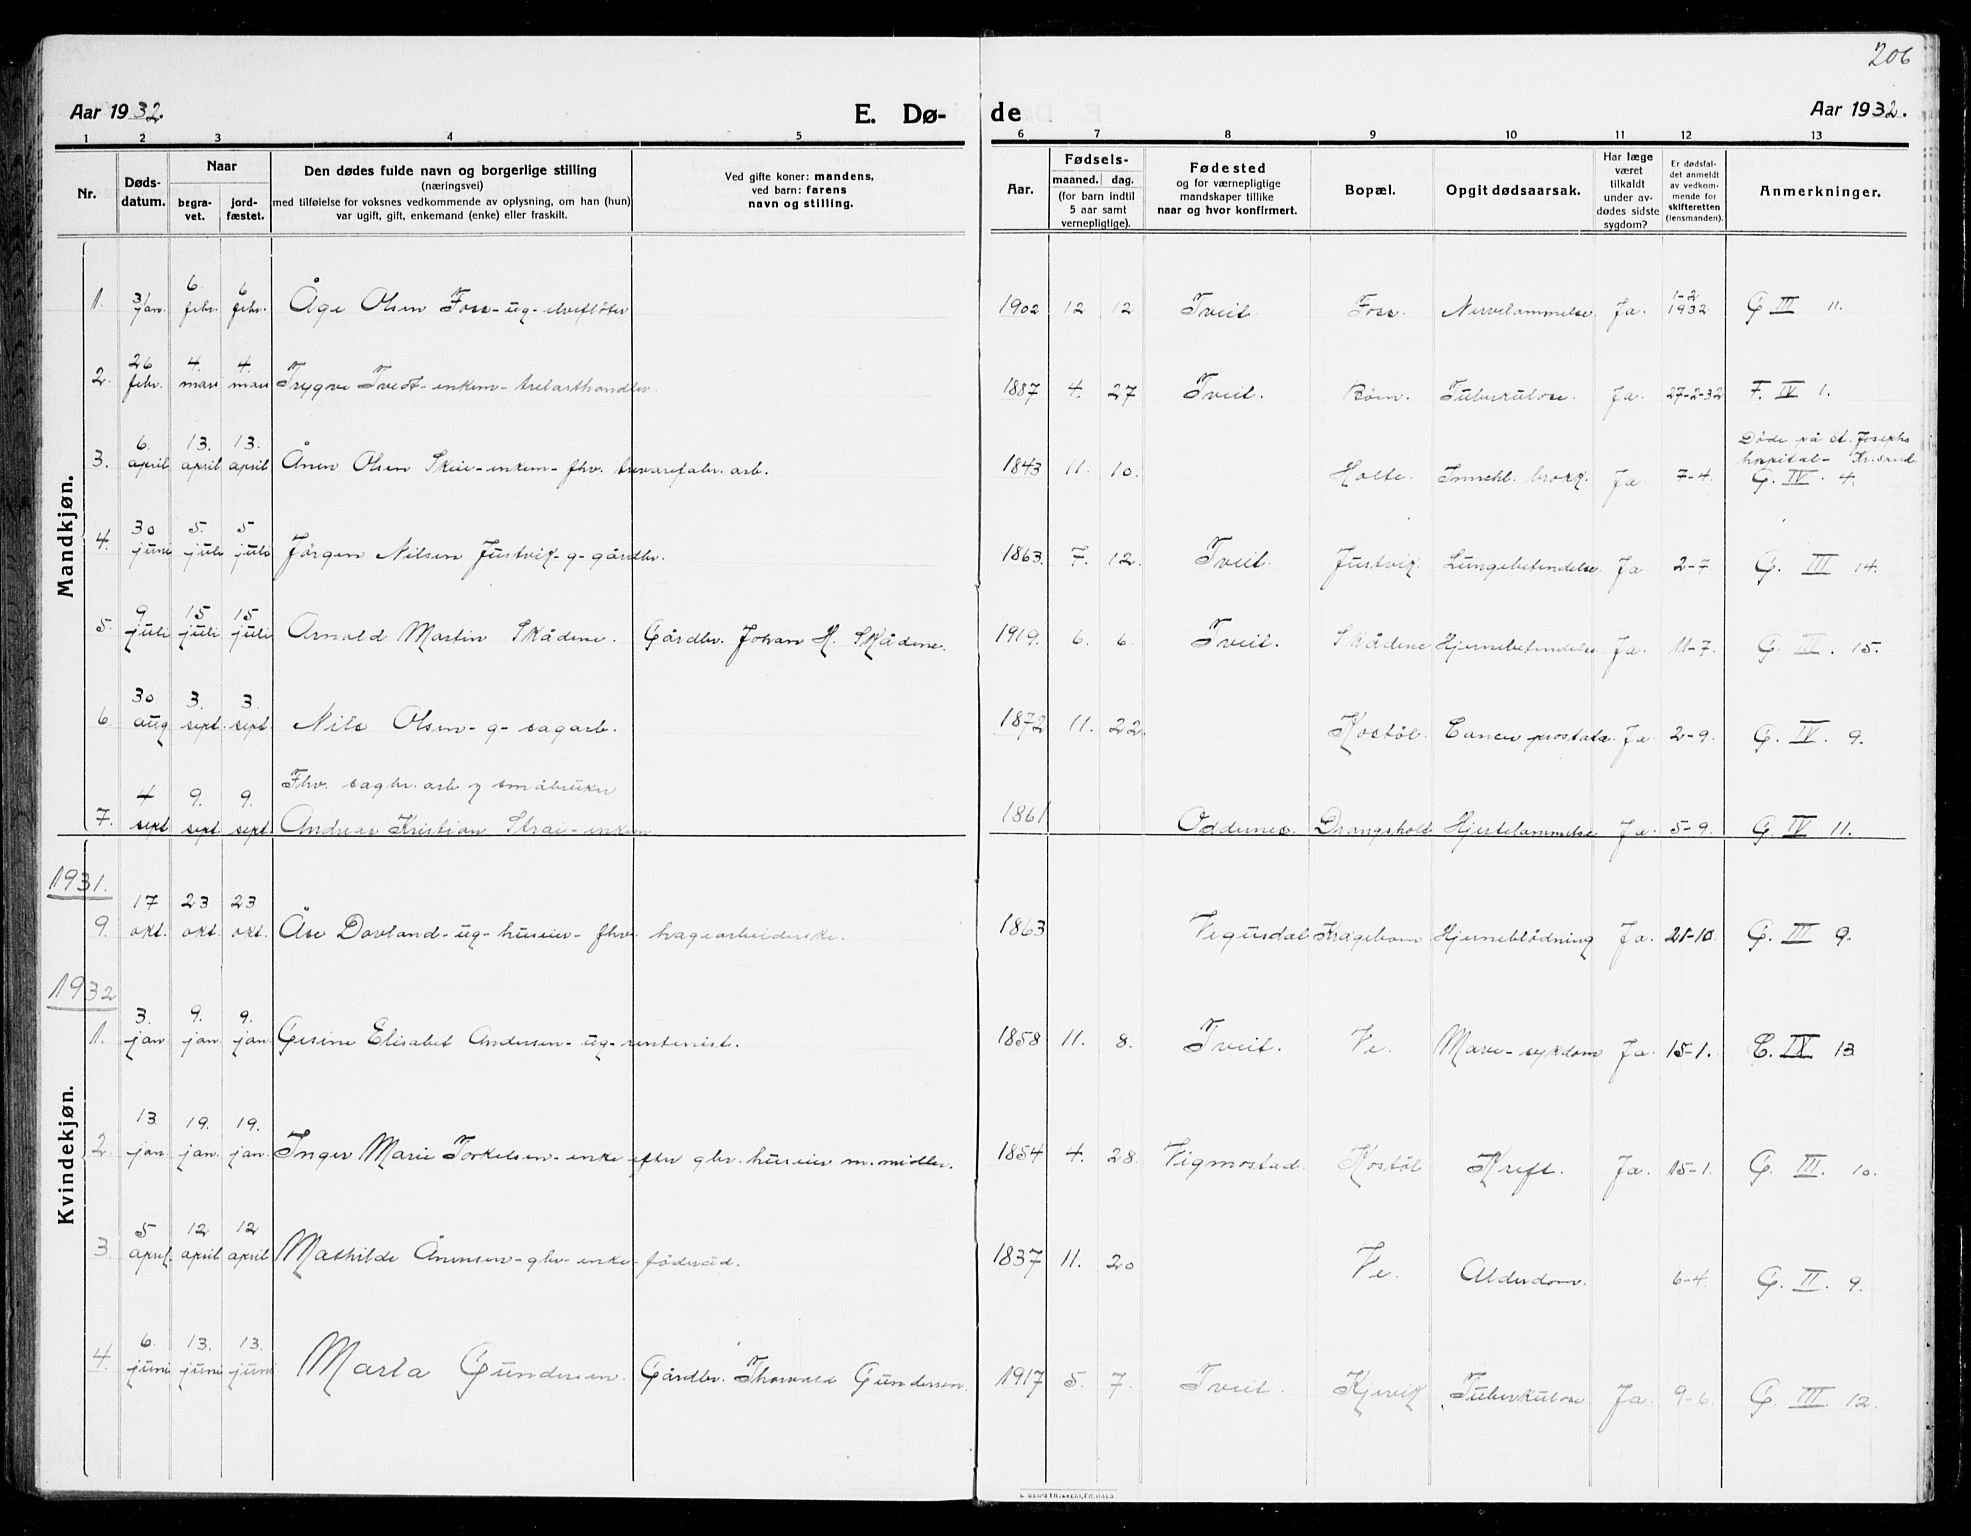 206
Aar 1932. E. Dø- de Aar 1932.
1 2 3 4 5 6 7 8 9 10 11 12 13
Nr. Døds-datum. Naar begra-vet. jord-fæstet. Den dødes fulde navn og borgerlige stilling (næringsvei) med tilføielse for voksnes vedkommende av oplysning, om han (hun) var ugift, gift, enkemand (enke) eller fraskilt. Ved gifte koner: mandens, ved barn: farens navn og stilling. Aar. Fødsels- maaned. dag. (for barn indtil 5 aar samt vernepligtige). Fødested og for værnepligtige mandskaper tillike naar og hvor konfirmert. Bopæl. Opgit dødsaarsak. Har læge været tilkaldt under av-dødes sidste sygdom? Er dødsfal-det anmeldt av vedkom-mende for skifteretten (lensmanden). Anmerkninger.
Mandkjøn.
1. 31 jan. 6. febr. 6 febr. Åge Olsen Foss - ug - elvefløter 1902 12 12 Tveit. Foss. Nervelammelse Ja. 1-2 1932 G III 11.
2. 26 febr. 4. mars 4. mars Trygve Tvedt - enkem - trelasthandler. 1887 4. 27 Tveit. Bøen. Tuberkulose. Ja. 27-2-32 F. IV 1.
3. 6. april 13. april 13. april Ånen Olsen Skeie - enkem - fhv. trevarefabr. arb. 1843 11. 10. Holte. Innekl. brokk. Ja 7-4. Døde på St. Josephs hospital - Kr.sand. G. IV. 4.
4. 30 juni 5. juli 5 juli Jørgen Nilsen Justvik - g - gårdbr. 1863. 7. 12. Tveit. Justvik. Lungebetendelse. Ja 2-7. G. III 14.
5. 9 juli 15 juli 15 juli Arnold Martin Skådene. Gårdbr. Johan H. Skådene. 1919. 6. 6. Tveit. Skådene Hjernebetendelse. Ja. 11-7. G. III. 15.
6. 30 aug 3. sept. 3. sept. Nils Olsen - g - sagarb. 1872 11. 22. Kostøl. Cancer prostata. Ja. 2-9. G. IV. 9.
Fhv. sagbr. arb og småbruker
7. 4 sept 9. sept 9. sept. Andreas Kristian Strai - enkem 1861 Oddernes. Drangsholt Hjertelammelse Ja. 5-9. G. IV 11.
Kvindekjøn.
1931.
9. 17 okt. 23 okt. 23 okt. Åse Dovland - ug - huseier - fhv. hagearbeiderske. 1863 Vegusdal Kragebom Hjerneblødning Ja. 21-10. G. III 9.
1932
1. 3. jan. 9. jan. 9. jan. Gesine Elisabet Andersen - ug - rentenist. 1858 11. 8. Tveit. Ve. Mave-sykdom Ja. 15-1. C. IV 13
2. 13 jan. 19. jan. 19. jan. Inger Marie Torkelsen - enke efter gbr. huseier m. midler. 1854 4. 28. Vigmostad. Kostøl Kreft. Ja. 15-1. G. III. 10.
3. 5 april. 12 april 12 april Mathilde Ånensen - gbr - enke - føderåd. 1837 11. 20 Ve. Alderdom. 6-4. G. II. 9.
4. 6. juni 13. juni 13. juni Marta Gundersen. Gårdbr. Thorvald Gundersen. 1917 5. 7. Tveit. Kjevik Tuberkulose Ja. 9-6. G. III. 12.